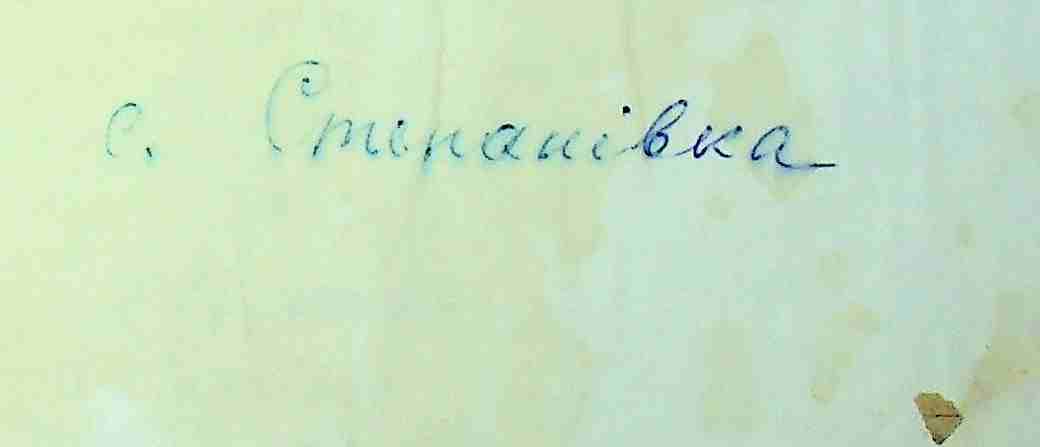 с. Степанівка